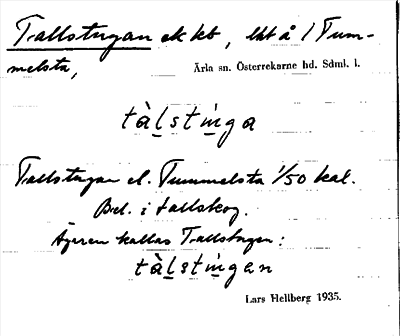 Tallstugan ek kb, lht å 1 Tum-
melsta,
Ärla sn. Österrekarne hd. Sdml. l.
tàḷstịṇga
Tallstugan el. Tummelsta 1/50 kal.
Bel. i tallskog.
Ägaren kallas Tallstugen:
tàḷstịṇgen
Lars Hellberg 1935.